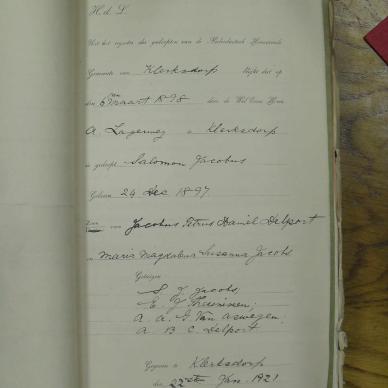 H. d. L.
Uit het register der gedoopten van de Nederduitsch Hervormde
Gemeente van Klerksdorp blijkt dat op
den 6den Maart 1898 door de Wel Eerw. Heer
A. Lagerwey te Klerksdorp
is gedoopt Salomon Jacobus
Geboren 24 Dec 1897
Zoon van Jacobus Petrus Daniel Delport
en Maria Magdalena Susanna Jacobs
Getuigen
S. J. Jacobs,
E. J. Theunissen;
A. A. G. Van Aswegen;
A. B. C. Delport
Gegeven te Klerksdorp
den 22sten Jan. 1921